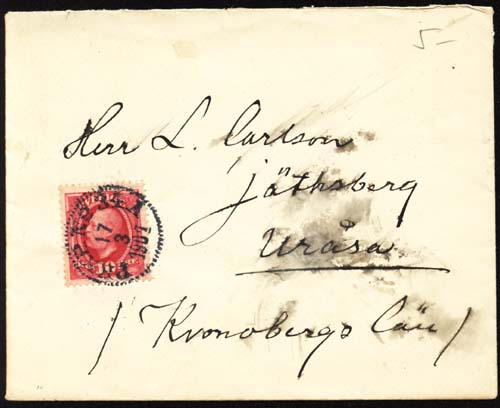 5-
Herr L. Carlson
Jäthsberg
Uråsa
/ Kronobergs Län /
17
3
10